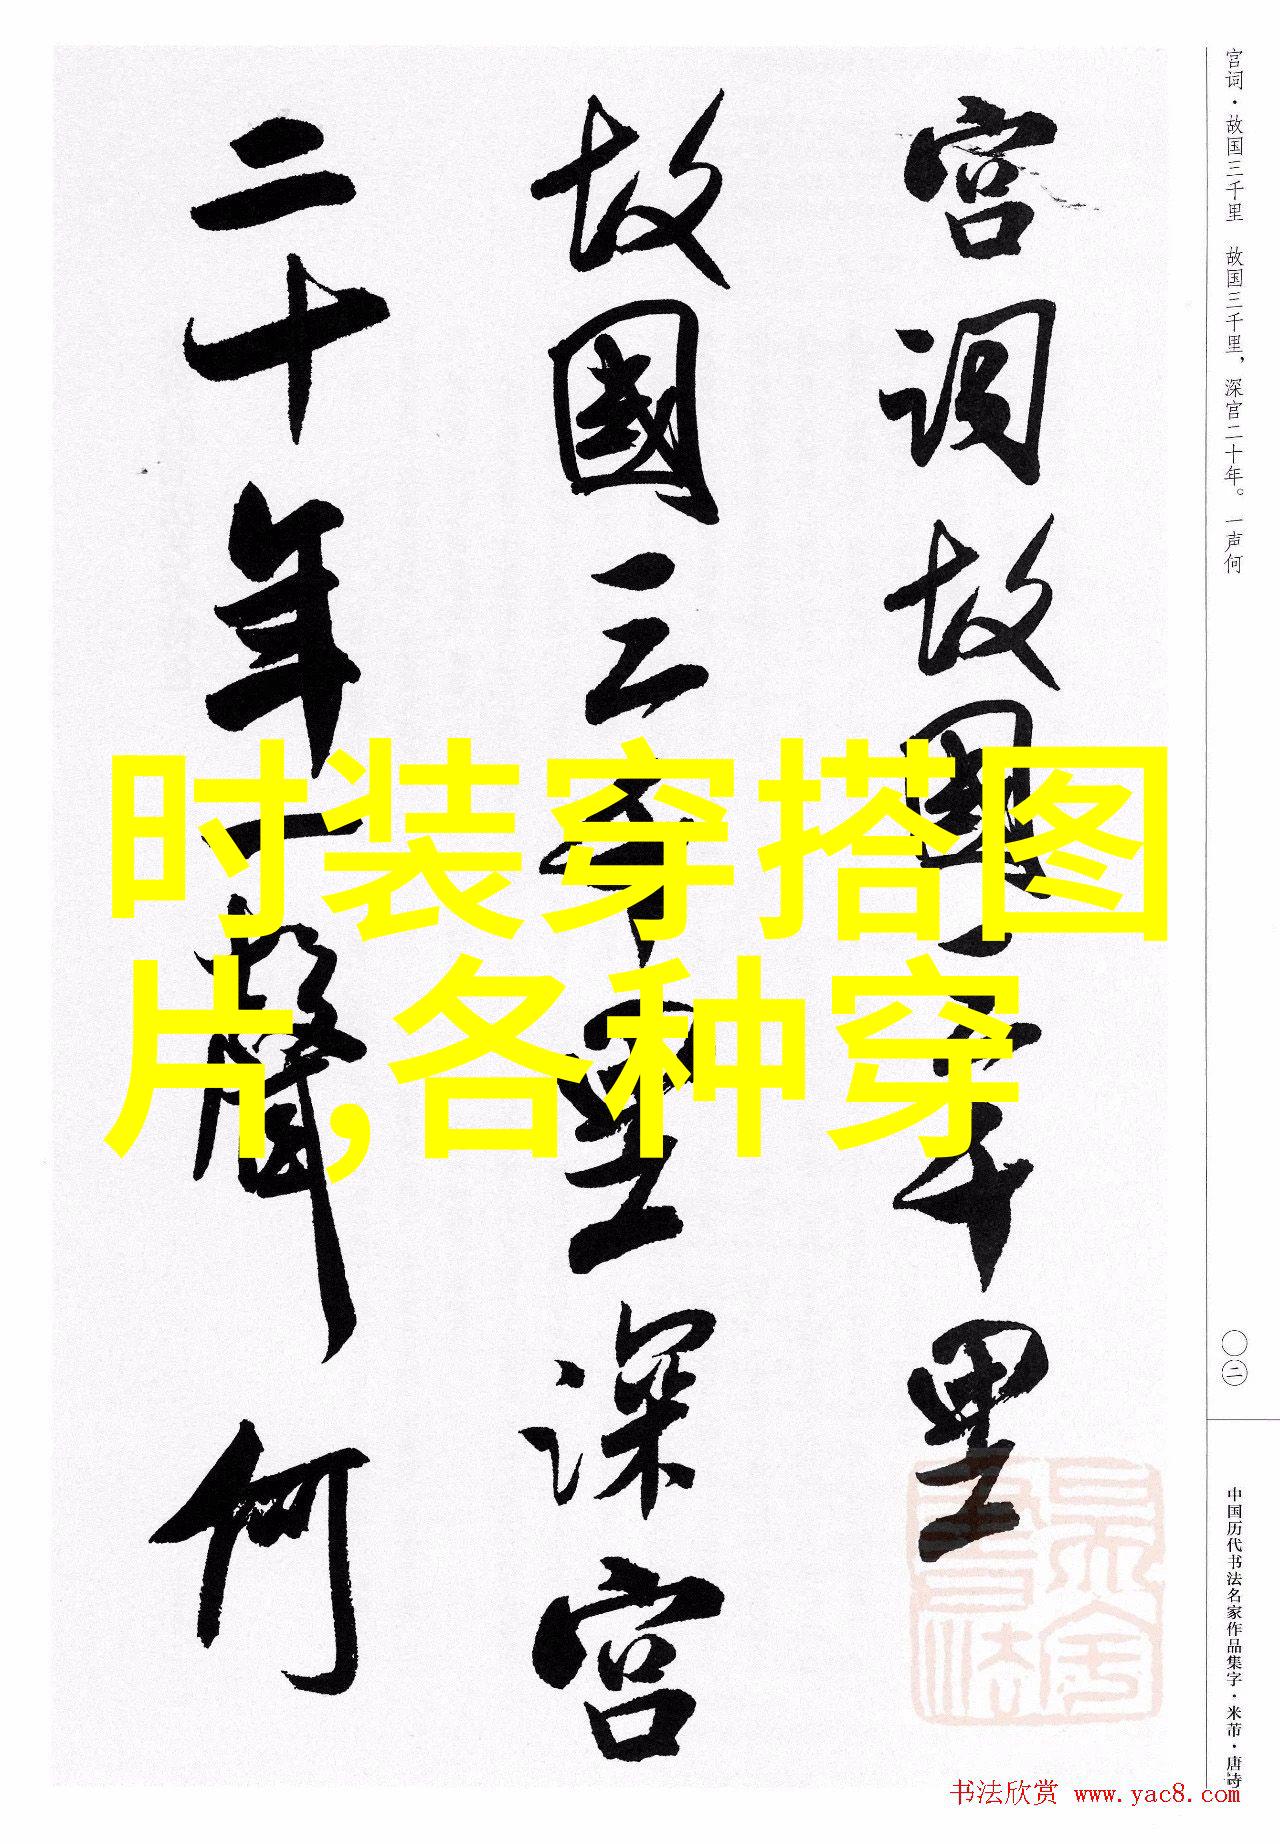 宫词故国三千里
故國三千里深宫
二十年一聲何
时装穿搭图
片,各种穿
宫词·故国三千里 故国三千里，深宫二十年。一声何
〇二
中国历代书法名家作品集字·米芾·唐诗
书法欣赏 www.yac8.com